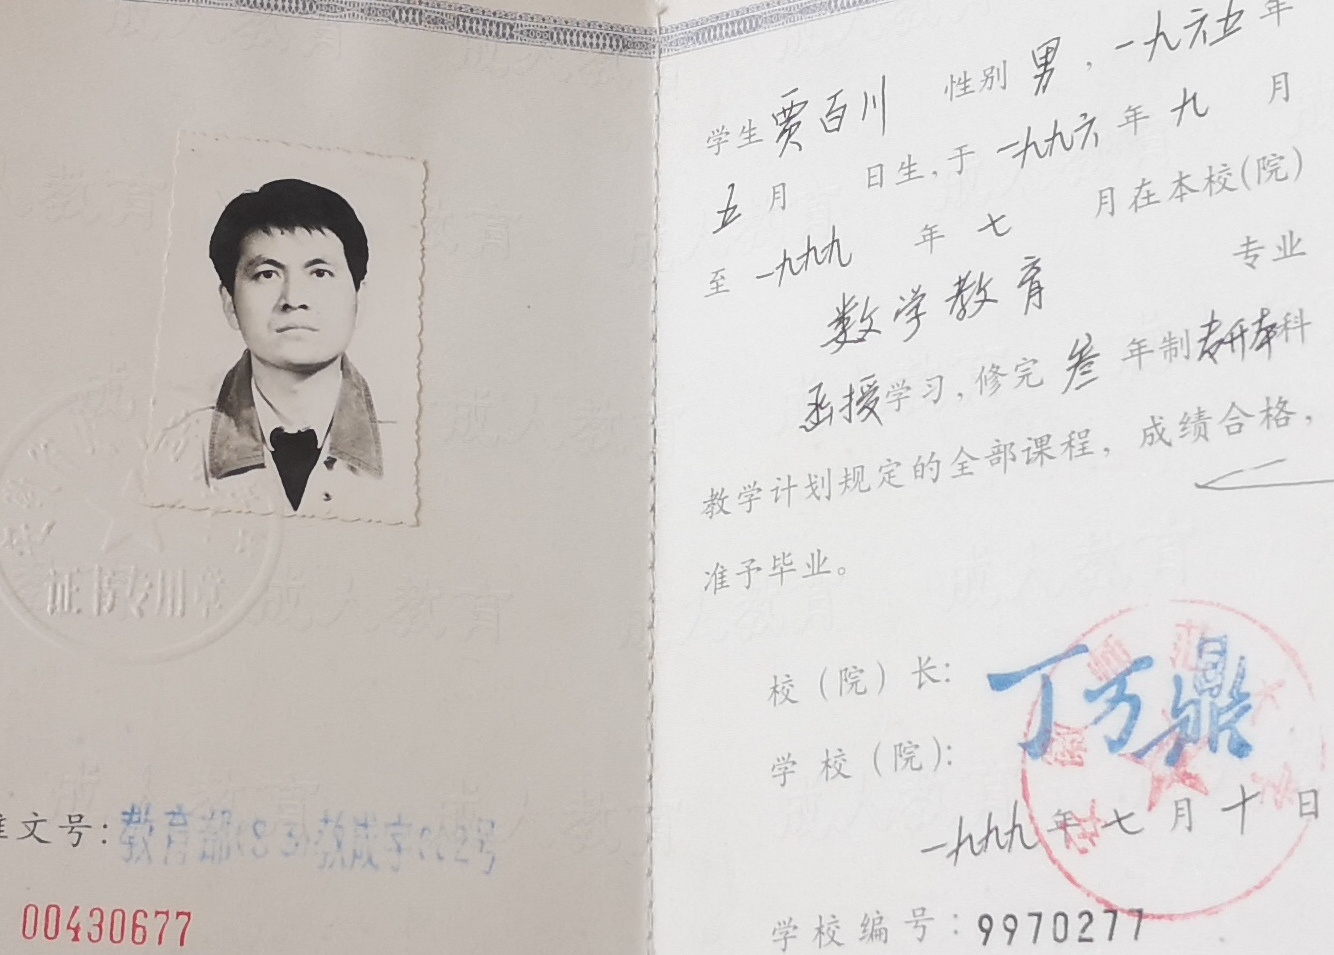 证书专用章
准文号：教育部(83)教成字002号
00430677
学生贾百川 性别男，一九六五年
五月 日生，于一九九六年九月
至一九九九年七月在本校(院)
数学教育 专业
函授学习，修完叁年制专升本科
教学计划规定的全部课程，成绩合格，
准予毕业。
校（院）长：丁方鼎
学校（院）：
一九九九年七月十日
学校编号：9970277
成人教育